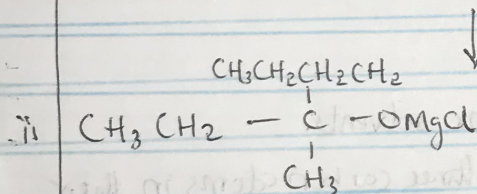 CH₃CH₂CH₂CH₂
ii CH₃ CH₂ — C — OMgCl
CH₃